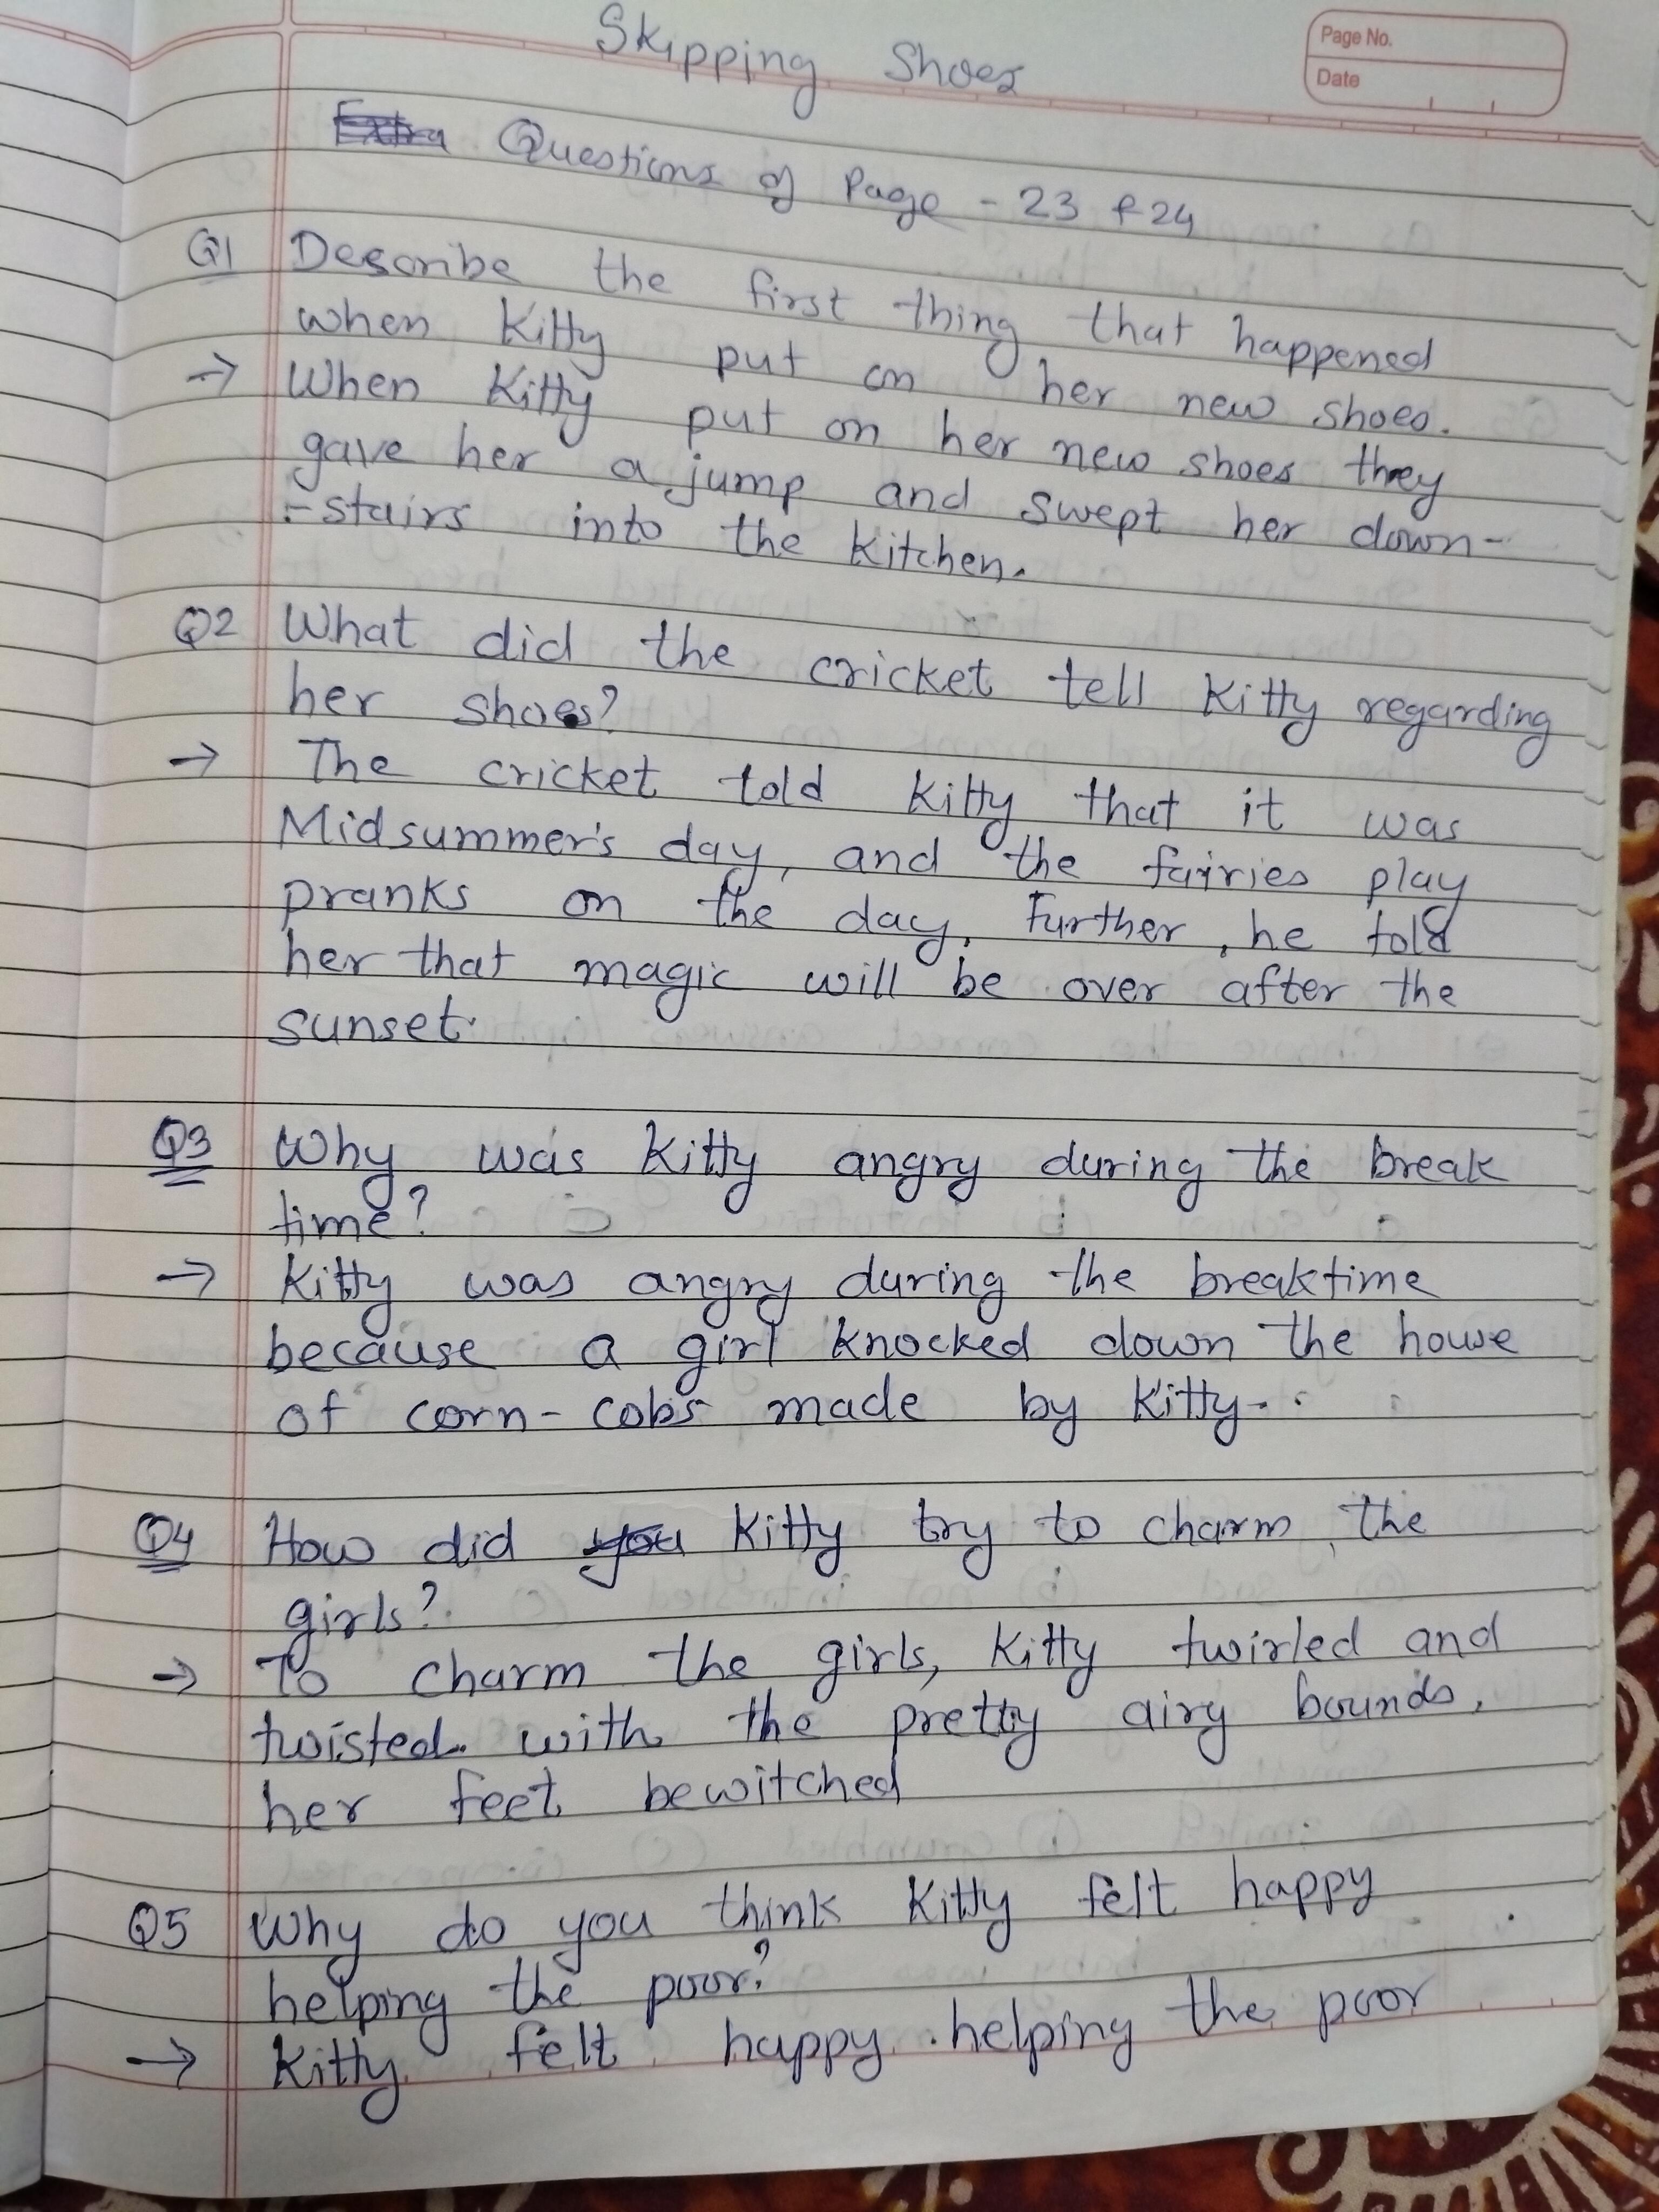 Skipping Shoes
Page No.
Date
Extra Questions of Page - 23 & 24
Q1 Describe the first thing that happened
when Kitty put on her new shoes.
→ When Kitty put on her new shoes they
gave her a jump and swept her down-
-stairs into the kitchen.
Q2 What did the cricket tell Kitty regarding
her shoes?
→ The cricket told Kitty that it was
Midsummer's day, and the fairies play
pranks on the day. Further, he told
her that magic will be over after the
sunset.
Q3 Why was Kitty angry during the break
time?
→ Kitty was angry during the breaktime
because a girl knocked down the house
of corn-cobs made by Kitty.
Q4 How did you Kitty try to charm the
girls?
→ To charm the girls, Kitty twirled and
twisted with the pretty airy bounds,
her feet bewitched
Q5 Why do you think Kitty felt happy
helping the poor?
→ Kitty felt happy helping the poor